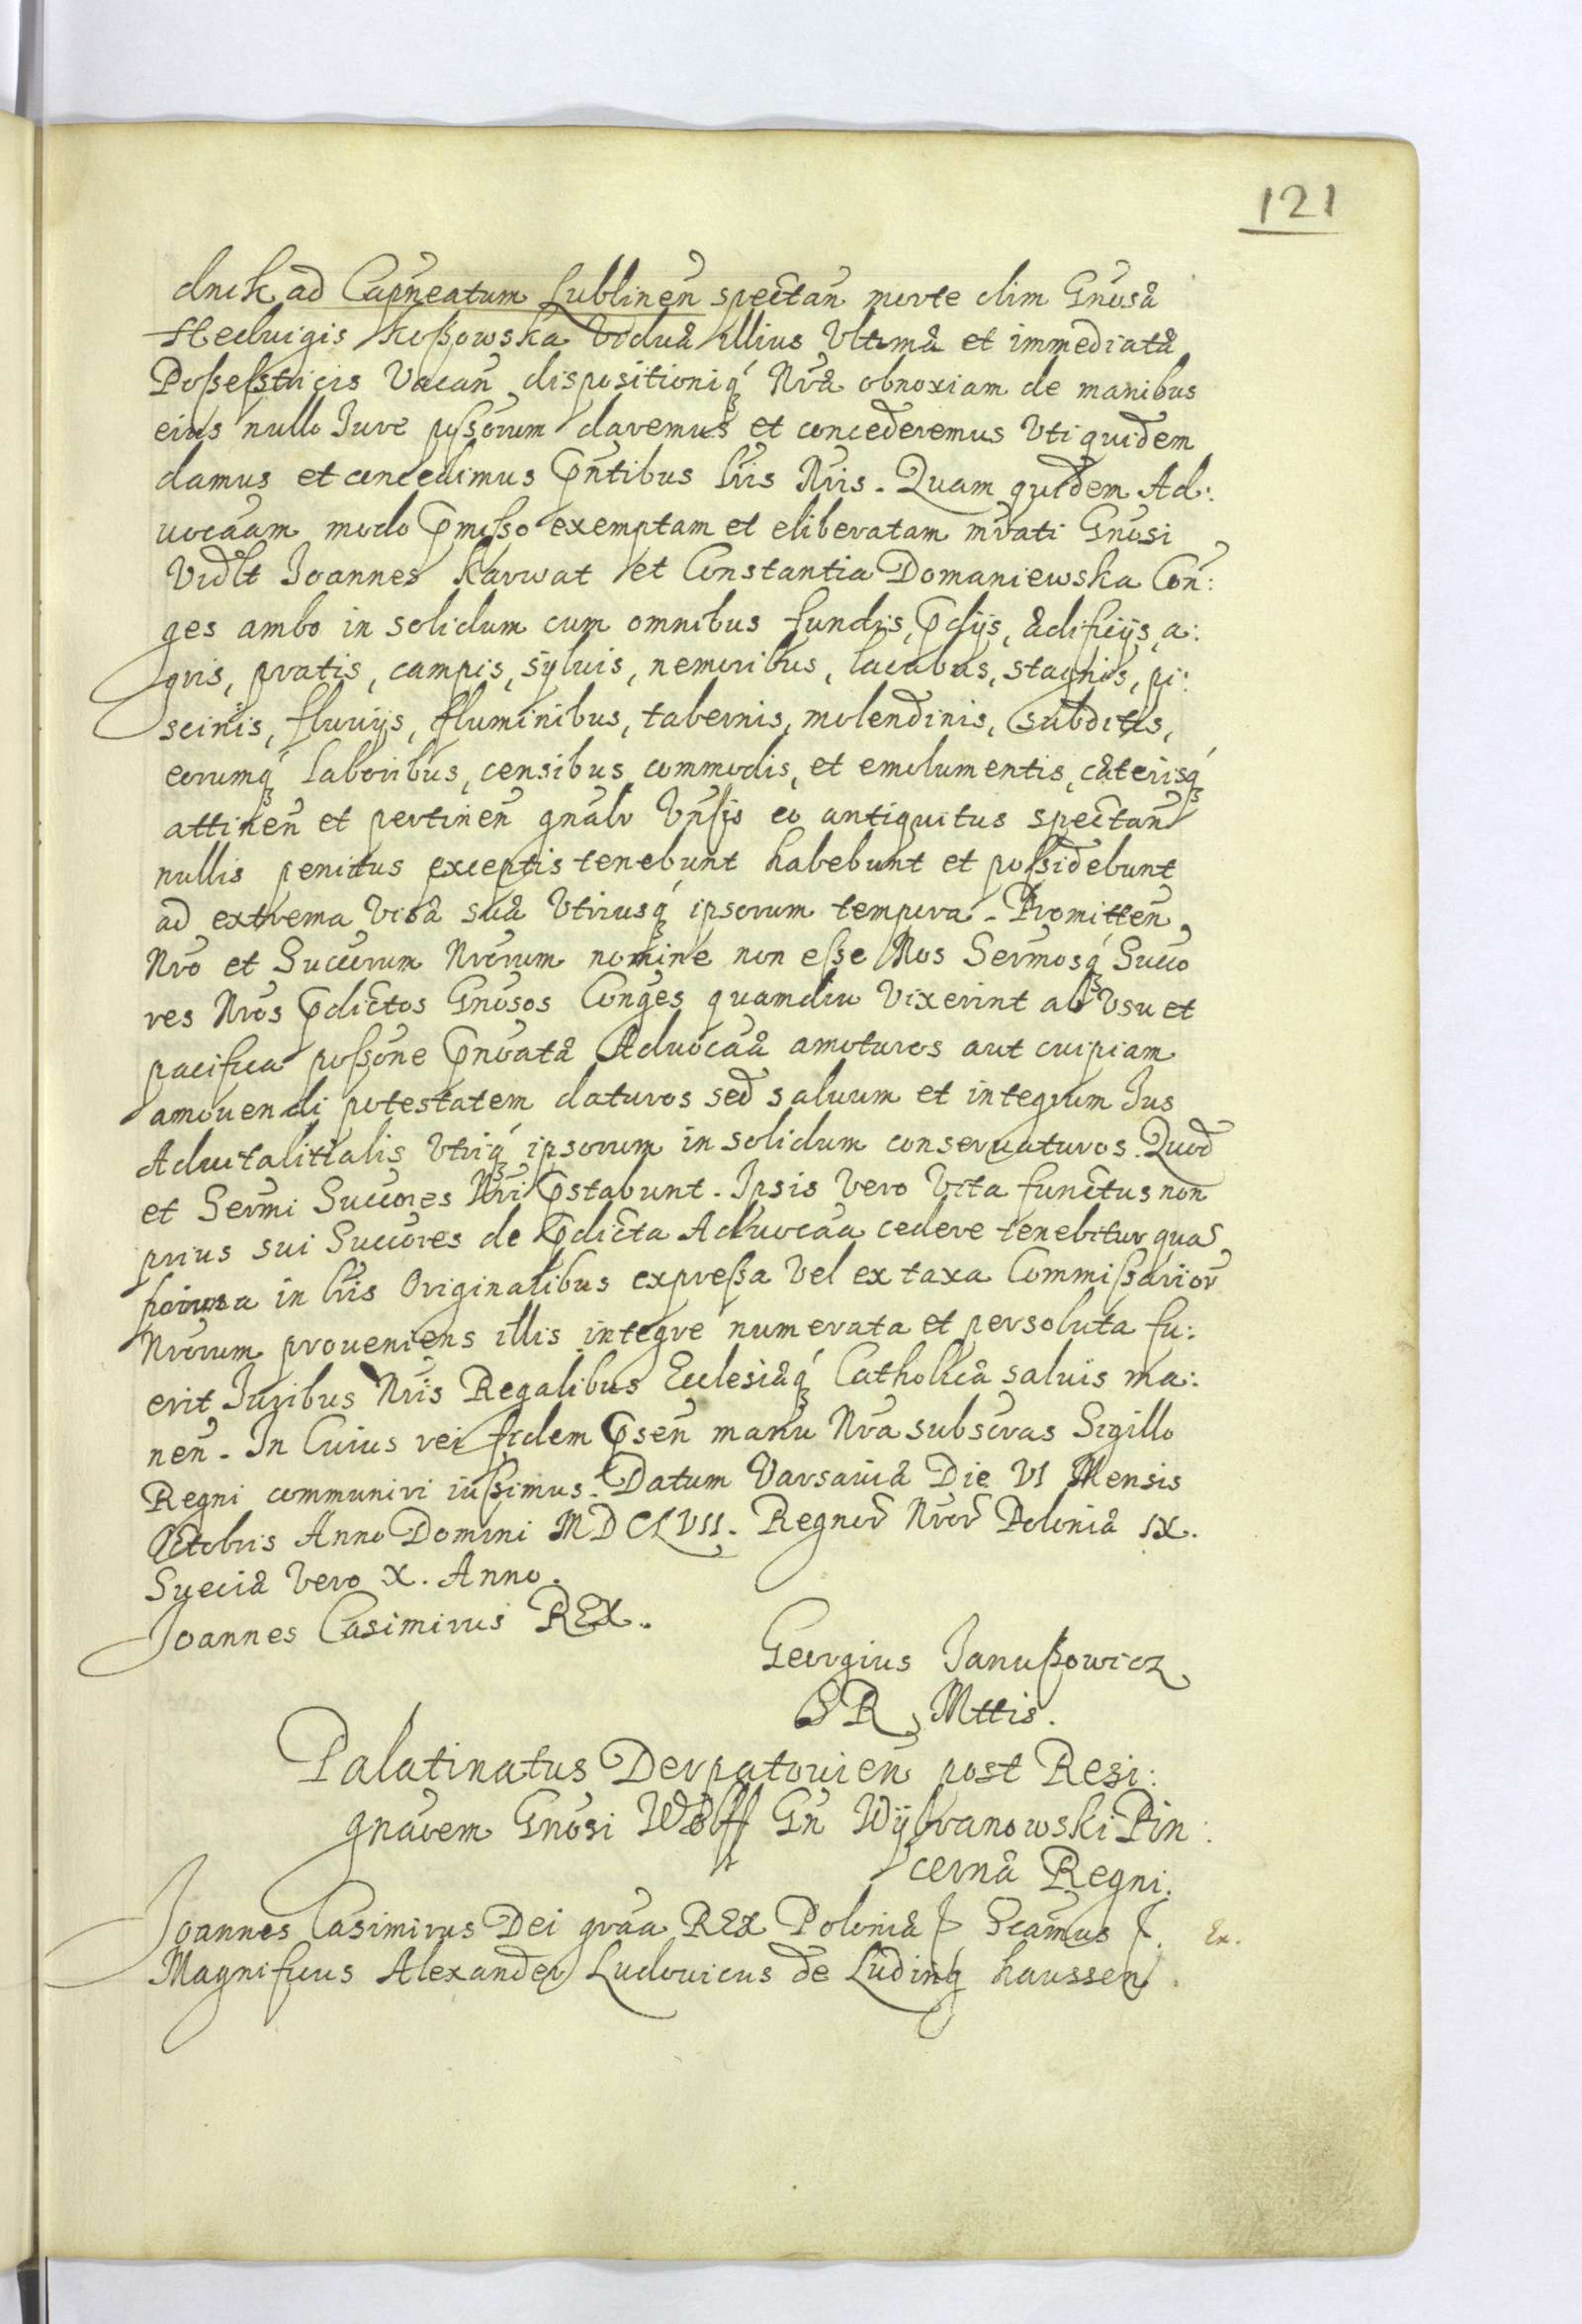 121
dnik ad Capneatum Lublinen spectan morte olim Gnosæ
Heduigis Koßowska Viduæ illius Vltimæ et immediatæ
Poßeßtricis Vacan dispositioniq́ Nræ obnoxiam de manibus
eius nullo Iure pssorum daremus et concederemus Vti quidem
damus et concedimus pntibus lris Nris. Quam quidem Ad:
uocãam modo pmisso exemptam et eliberatam mrati Gnosi
Vidlt Ioannes Karwat et Constantia Domaniewska Con:
ges ambo in solidum cum omnibus fundis, pdijs, ædificijs, a:
gris, pratis, campis, syluis, nemoribus, lacubus, stagnis, pi:
scinis, fluuijs, fluminibus, tabernis, molendinis, subditis,
eorumq́ laboribus, censibus commodis, et emolumentis, cæterisq́
attinen et pertinen gnalr Vnssis eo antiquitus spectan
nullis penitus exceptis tenebunt habebunt et poßidebunt
ad extrema Vitæ suæ Vtriusq́ ipsorum tempora. Promitten
Nro et Succorum Nrorum nomine non eße Nos Sermosq́ Succo
res Nros pdictos Gnosos Conges quamdiu Vixerint ab Vsu et
pacifica poßone pnoatæ Aduocãæ amoturos aut cuipiam
amouendi potestatem daturos sed saluum et integrum Ius
Aduitalitialis Vtriq́ ipsorum in solidum conseruaturos. Quod
et Sermi Succores Nri pstabunt. Ipsis Vero Vita functus non
prius sui Succores de pdicta Aduocãa cedere tenebitur quas
in lris Originalibus expreßa Vel ex taxa Commißarior
Nrorum proueniens illis integre numerata et persoluta fu:
erit Iuribus Nris Regalibus Ecclesiæq́ Catholicæ saluis ma:
nen. In Cuius rei fidem psen manu Nra subscras Sigillo
Regni communiri iußimus. Datum Varsauiæ Die VI Mensis
Octobris Anno Domini MDCLVII. Regnor Nror Poloniæ IX.
Sueciæ Vero X. Anno.
Joannes Casimirus REX.
Georgius Ianußowicz
SR Mttis.
Palatinatus Derpatouien post Resi:
gnaõem Gnosi Wolff Gn Wÿbranowski Pin:
cernæ Regni.
Joannes Casimirus Dei grãa REX Poloniæ Scamus
Ex.
Magnificus Alexander Ludouicus de Luding haussen